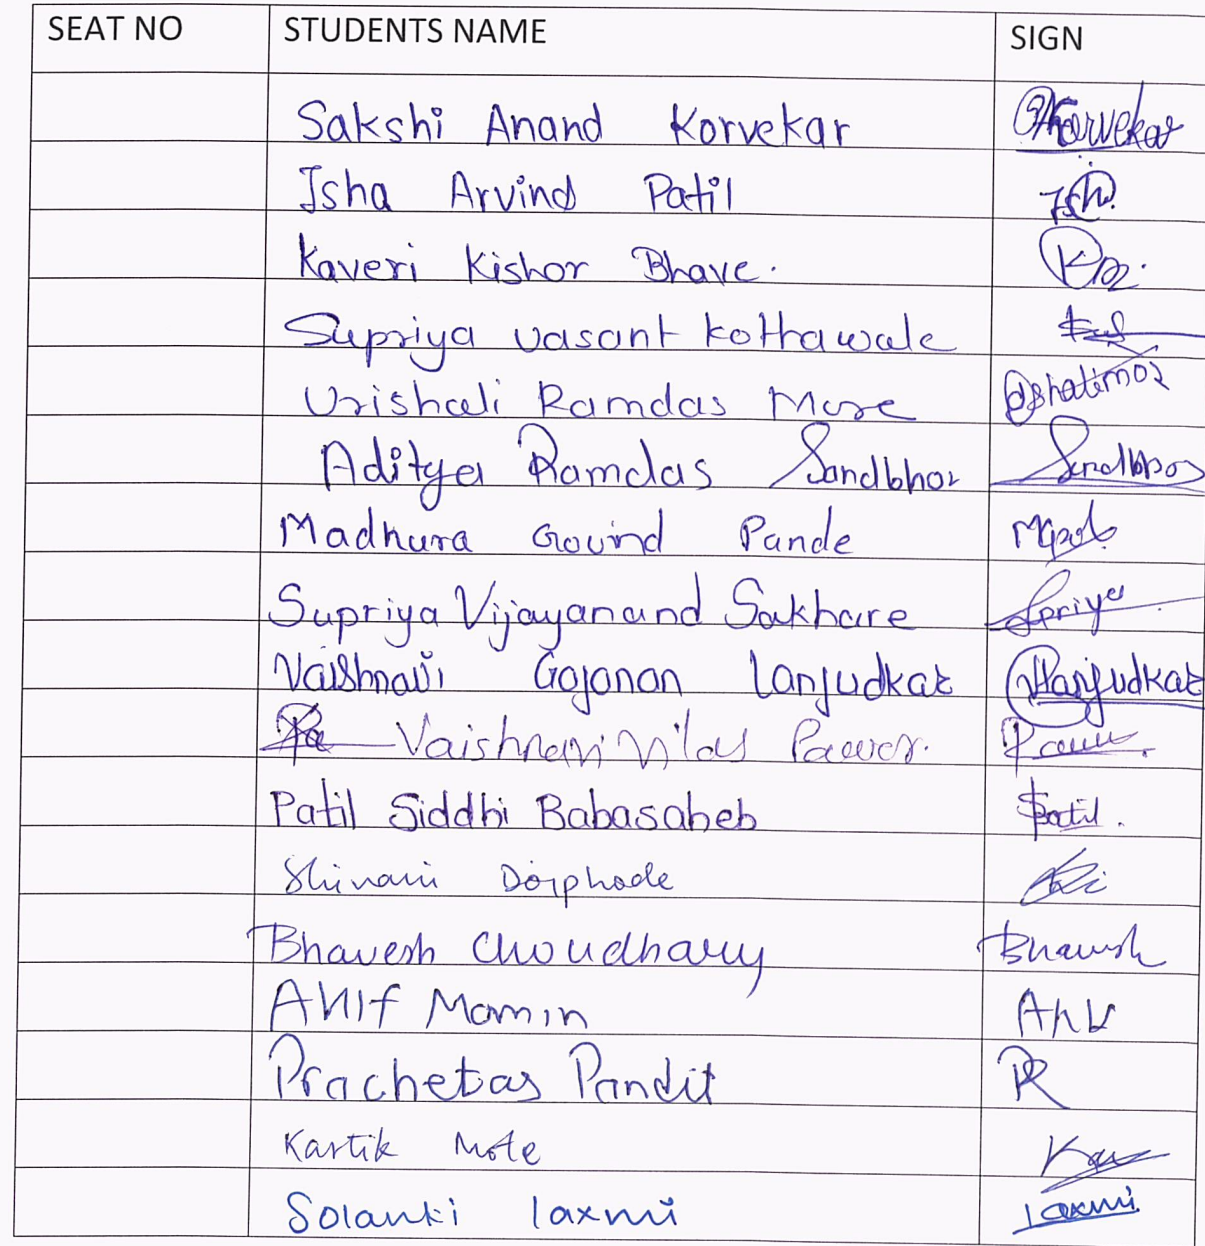 SEAT NO STUDENTS NAME SIGN
Sakshi Anand Korvekar Korvekar
Isha Arvind Patil Ish
Kaveri Kishor Bhave.
Supriya vasant kothawale
Vrishali Ramdas More
Aditya Ramdas Sandbhor Sandbhor
Madhura Govind Pande
Supriya Vijayanand Sakhare Spriya
Vaishnavi Gajanan Lanjudkar Lanjudkar
Vaishnavi Vilas Pawar.
Patil Siddhi Babasaheb Patil.
Shivani Dorphode
Bhavesh Choudhary Bhavesh
Momin
Prachetas Pandit PR
Kartik Mote
Solanki laxmi laxmi